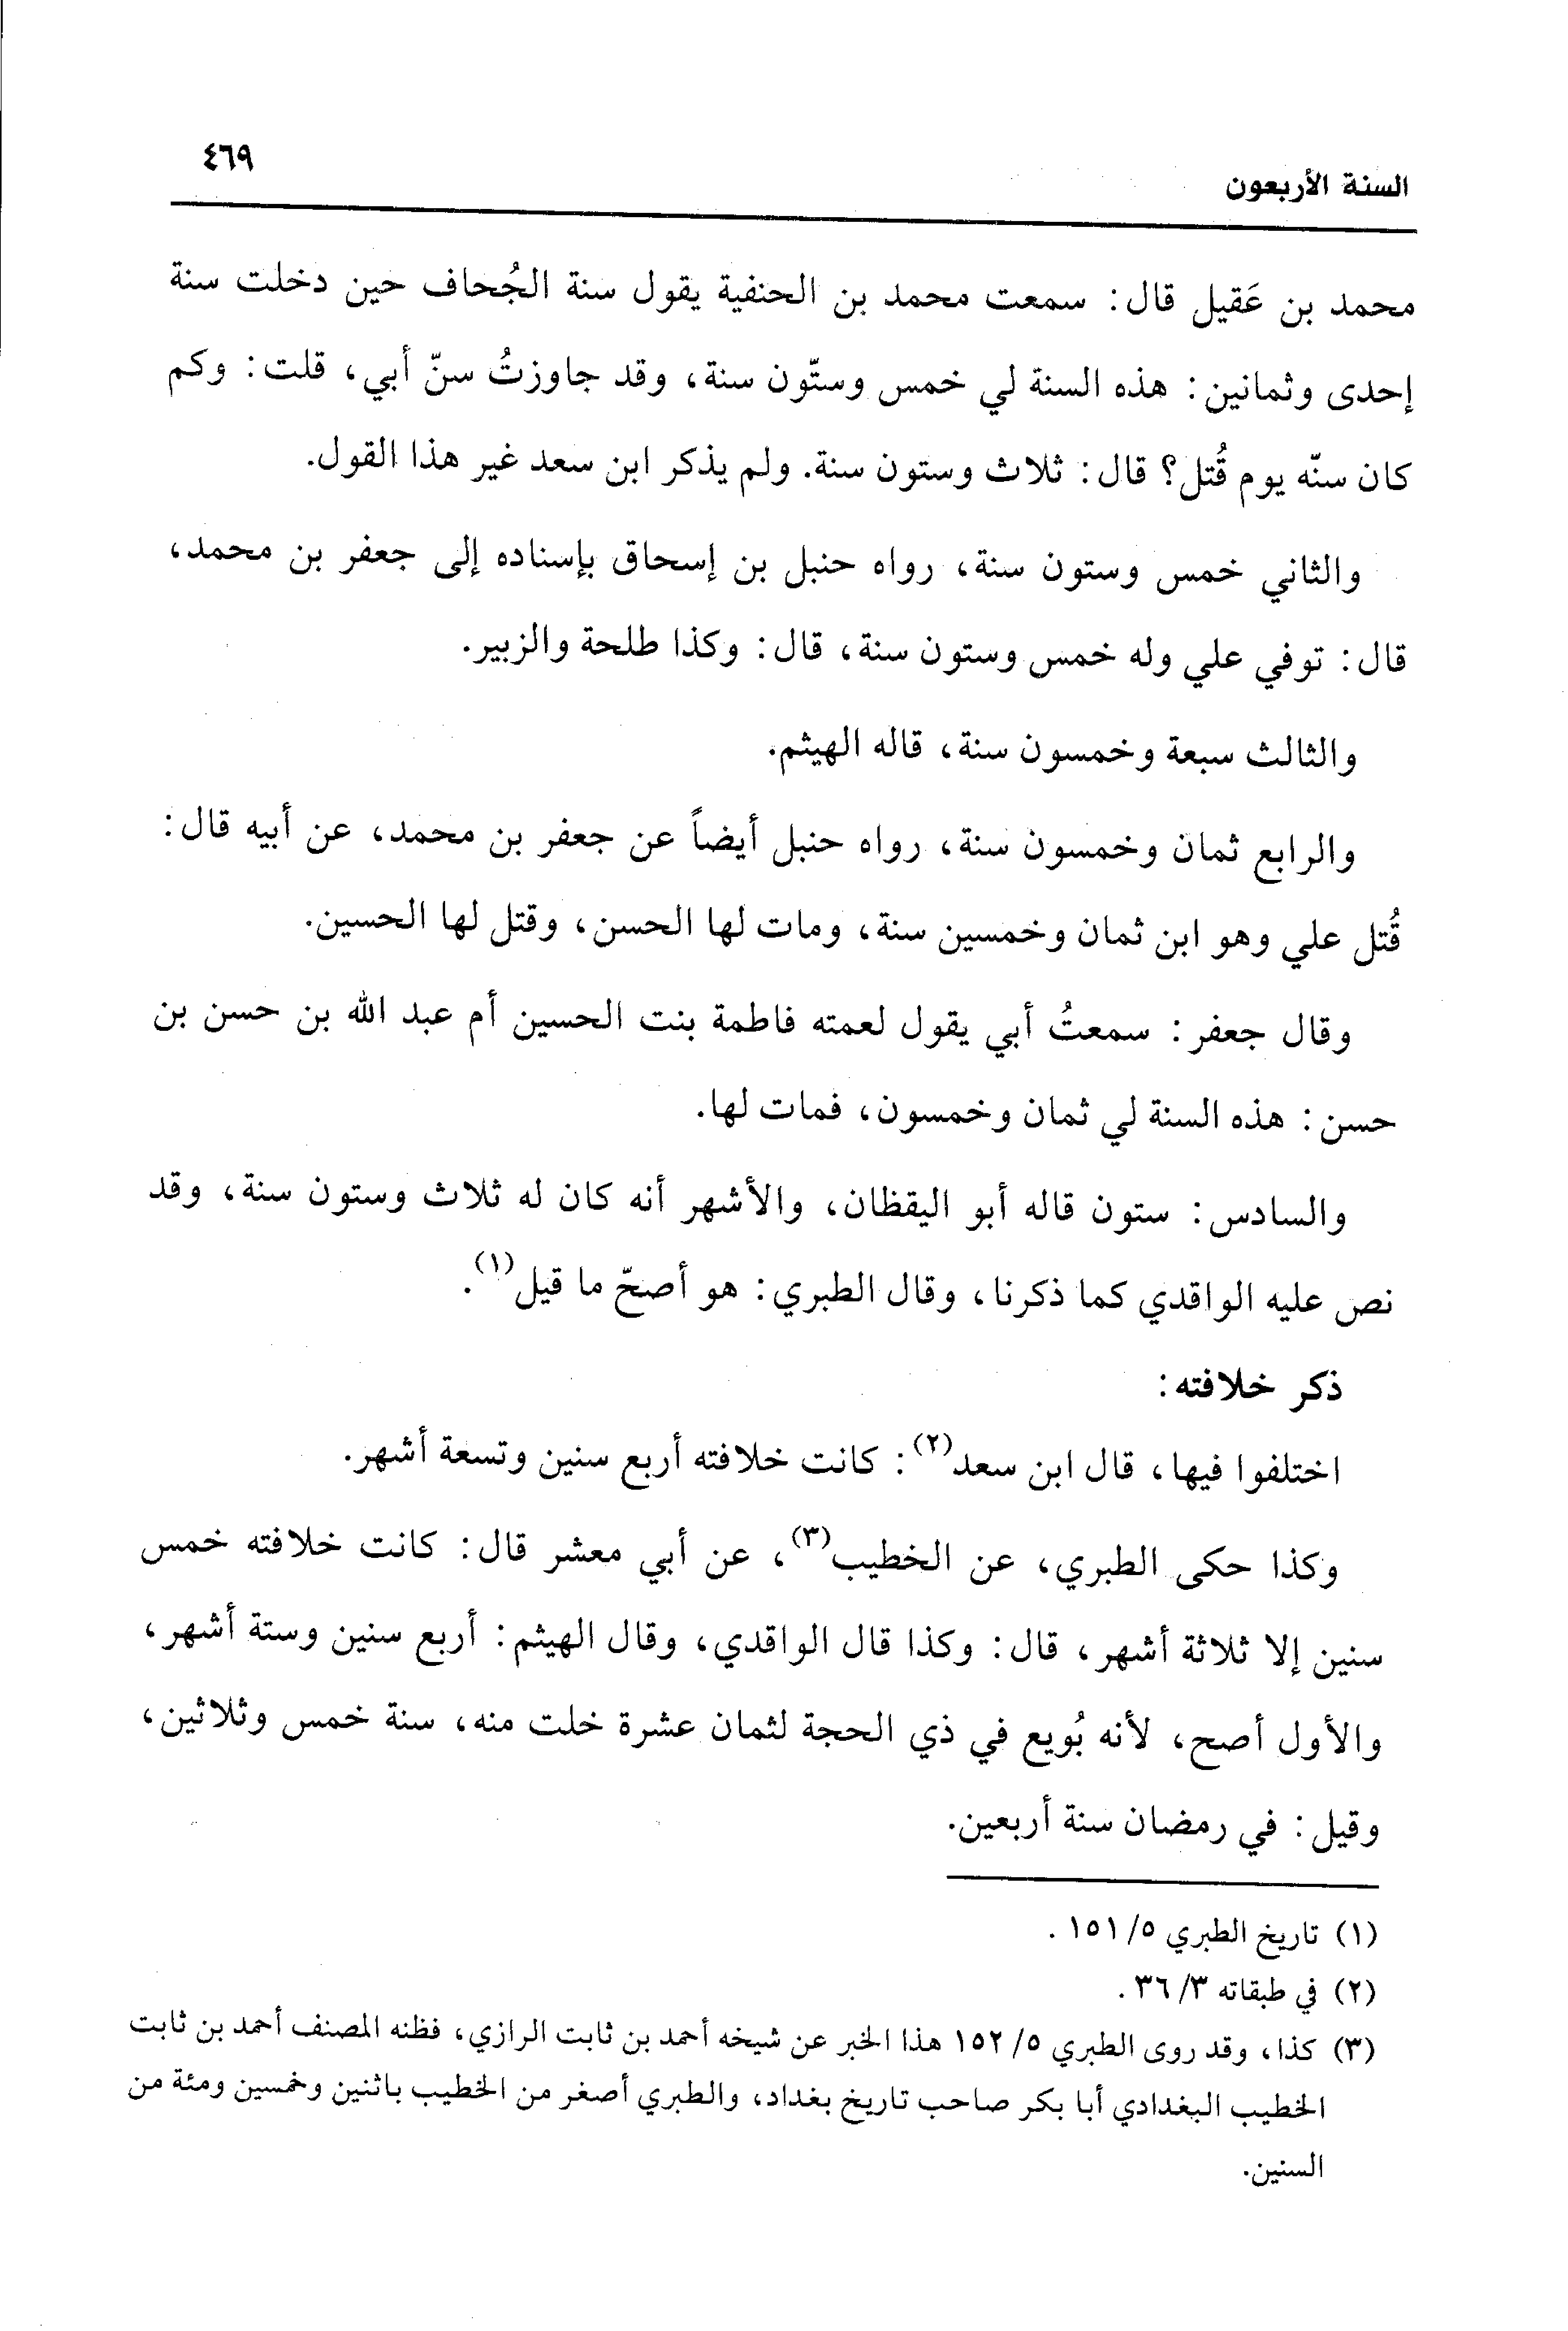 ٤٦٩
السنة الأربعون
محمد بن عَقيل قال: سمعت محمد بن الحنفية يقول سنة الجُحاف حين دخلت سنة
إحدى وثمانين: هذه السنة لي خمس وستّون سنة، وقد جاوزتُ سنّ أبي، قلت: وكم
كان سنّه يوم قُتل؟ قال: ثلاث وستون سنة. ولم يذكر ابن سعد غير هذا القول.
والثاني خمس وستون سنة، رواه حنبل بن إسحاق بإسناده إلى جعفر بن محمد،
قال: توفي علي وله خمس وستون سنة، قال: وكذا طلحة والزبير.
والثالث سبعة وخمسون سنة، قاله الهيثم.
والرابع ثمان وخمسون سنة، رواه حنبل أيضاً عن جعفر بن محمد، عن أبيه قال:
قُتل علي وهو ابن ثمان وخمسين سنة، ومات لها الحسن، وقتل لها الحسين.
وقال جعفر: سمعتُ أبي يقول لعمته فاطمة بنت الحسين أم عبد الله بن حسن بن
حسن: هذه السنة لي ثمان وخمسون، فمات لها.
والسادس: ستون قاله أبو اليقظان، والأشهر أنه كان له ثلاث وستون سنة، وقد
نص عليه الواقدي كما ذكرنا، وقال الطبري: هو أصحّ ما قيل(١).
ذكر خلافته:
اختلفوا فيها، قال ابن سعد(٢): كانت خلافته أربع سنين وتسعة أشهر.
وكذا حكى الطبري، عن الخطيب(٣)، عن أبي معشر قال: كانت خلافته خمس
سنين إلا ثلاثة أشهر، قال: وكذا قال الواقدي، وقال الهيثم: أربع سنين وستة أشهر،
والأول أصح، لأنه بُويع في ذي الحجة لثمان عشرة خلت منه، سنة خمس وثلاثين،
وقيل: في رمضان سنة أربعين.
(١) تاريخ الطبري ٥/ ١٥١ .
(٢) في طبقاته ٣/ ٣٦ .
(٣) كذا، وقد روى الطبري ٥/ ١٥٢ هذا الخبر عن شيخه أحمد بن ثابت الرازي، فظنه المصنف أحمد بن ثابت
الخطيب البغدادي أبا بكر صاحب تاريخ بغداد، والطبري أصغر من الخطيب باثنين وخمسين ومئة من
السنين.